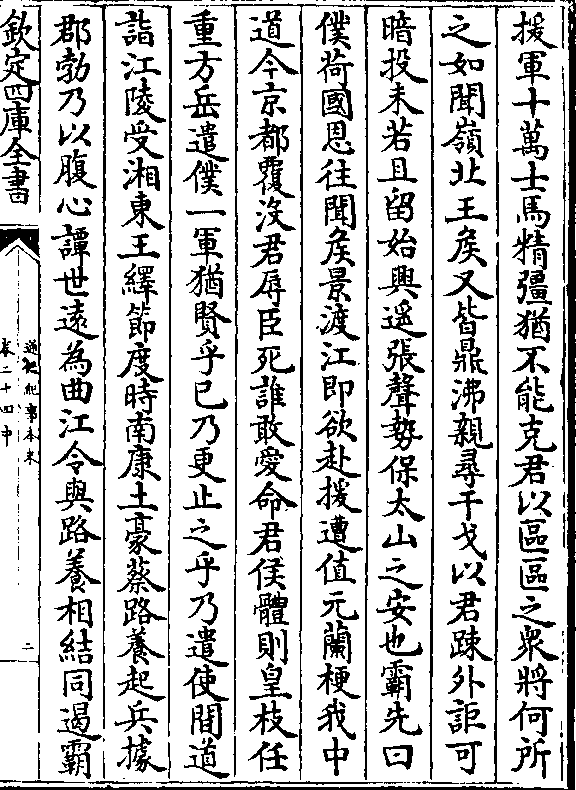 援軍十萬士馬精彊猶不能克君以區區之衆將何所
之如聞嶺北王侯又皆鼎沸親尋干戈以君踈外詎可
暗投未若且留始興遥張聲勢保太山之安也霸先曰
僕荷國恩往聞侯景渡江即欲赴援遭值元蘭梗我中
道今京都覆沒君辱臣死誰敢愛命君侯體則皇枝任
重方岳遣僕一軍猶賢乎已乃更止之乎乃遣使間道
詣江陵受湘東王繹節度時南康土豪蔡路養起兵據
郡勃乃以腹心譚世遠為曲江令與路養相結同遏霸
欽定四庫全書
通鑑紀事本末
卷二十四中
二